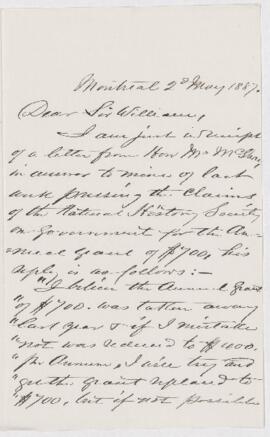 Montreal 2d May 1887.
Dear Sir William,
I am just in receipt
of a letter from Hon Mr Mc
in answer to mine of last
week pressing the claims
of the Natural History Society
on Government for the An-
nual grant of $700, his
reply is as follows:-
"I believe the Annual Grant
"of $700. was taken away
"last year & if I mistake
"not was reduced to $400.
"per Annum, I will try and
"get the grant replaced to
"$700, but if not possible